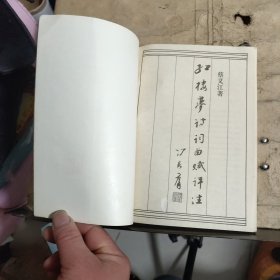 蔡义江著
红楼梦诗词曲赋评注